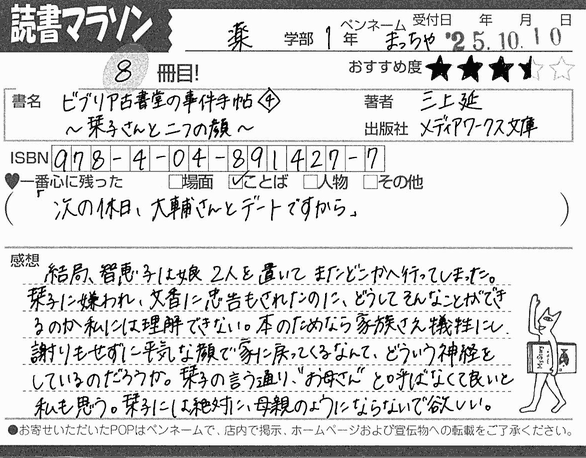 読書マラソン
薬 学部 1 年 ペンネーム まっちゃ 受付日 年 月 日 '25.10.10
8 冊目! おすすめ度 ★★★⯨☆
書名 ビブリア古書堂の事件手帖④ 著者 三上延
～栞子さんと二つの顔～ 出版社 メディアワークス文庫
ISBN 978-4-04-891427-7
♥一番心に残った □場面 ☑ことば □人物 □その他
(「次の休日、大輔さんとデートですから」)
感想
結局、智恵子は娘2人を置いてまたどこかへ行ってしまった。
栞子に嫌われ、文香に忠告もされたのに、どうしてそんなことができ
るのか私には理解できない。本のためなら家族さえ犠牲にし
謝りもせずに平気な顔で家に戻ってくるなんて、どういう神経を
しているのだろうか。栞子の言う通り、"お母さん"と呼ばなくて良いと
私も思う。栞子には絶対に、母親のようにならないで欲しい。
●お寄せいただいたPOPはペンネームで、店内で掲示、ホームページおよび宣伝物への転載をご了承ください。